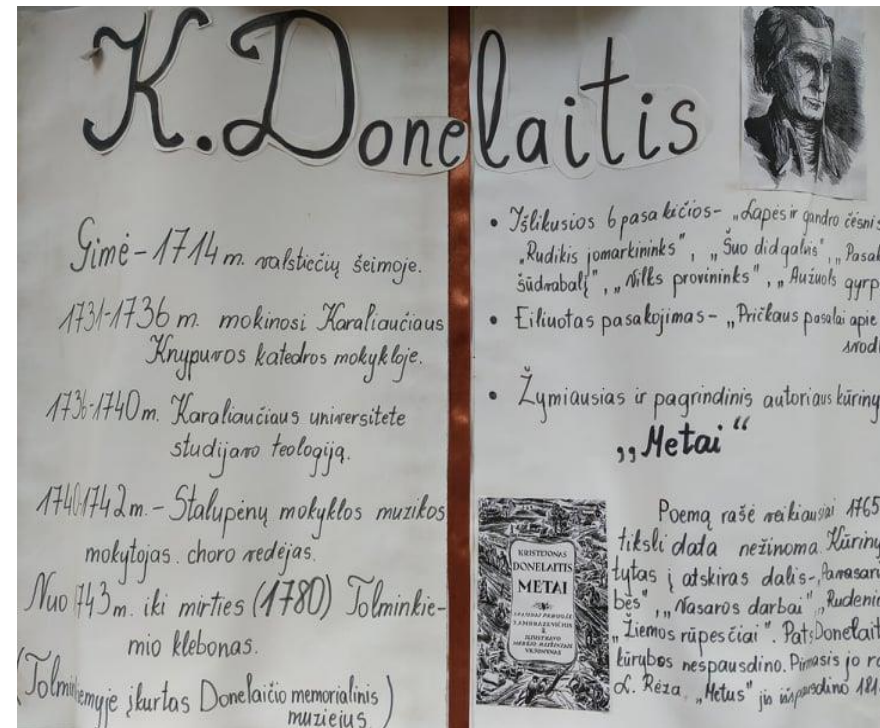 K. Donelaitis
Gimė - 1714 m. valstiečių šeimoje.
1731-1736 m. mokinosi Karaliaučiaus
Knypuvos katedros mokykloje.
1736-1740 m. Karaliaučiaus universitete
studijavo teologiją.
1740-1742 m. - Stalupėnų mokyklos muzikos
mokytojas. choro vedėjas.
Nuo 1743 m. iki mirties (1780) Tolminkie-
mio klebonas.
(Tolminkiemyje įkurtas Donelaičio memorialinis
muziejus.)
• Išlikusios 6 pasakėčios - „Lapės ir gandro česnis
„Rudikis jomarkininks", „Šuo didgalvis", „Pasak
šūdvabalį", „Vilks provininks", „Aužuols gyrp
• Eiliuotas pasakojimas - „Pričkaus pasaka apie
svodb
• Žymiausias ir pagrindinis autoriaus kūriny
„Metai"
KRISTIJONAS
DONELAITIS
METAI
Poemą rašė veikiausiai 1765
tiksli data nežinoma. Kūriny
tytas į atskiras dalis - „Pavasari
bės", „Vasaros darbai", „Rudeni
„Žiemos rūpesčiai". Pats Donelait
kūrybos nespausdino. Pirmasis jo ra
L. Rėza. „Metus" jis išspausdino 181